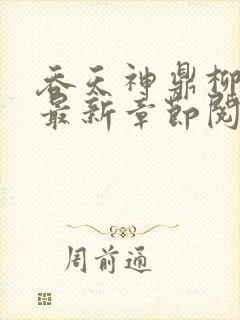 吞天神鼎柳
最新章节阅
周前通